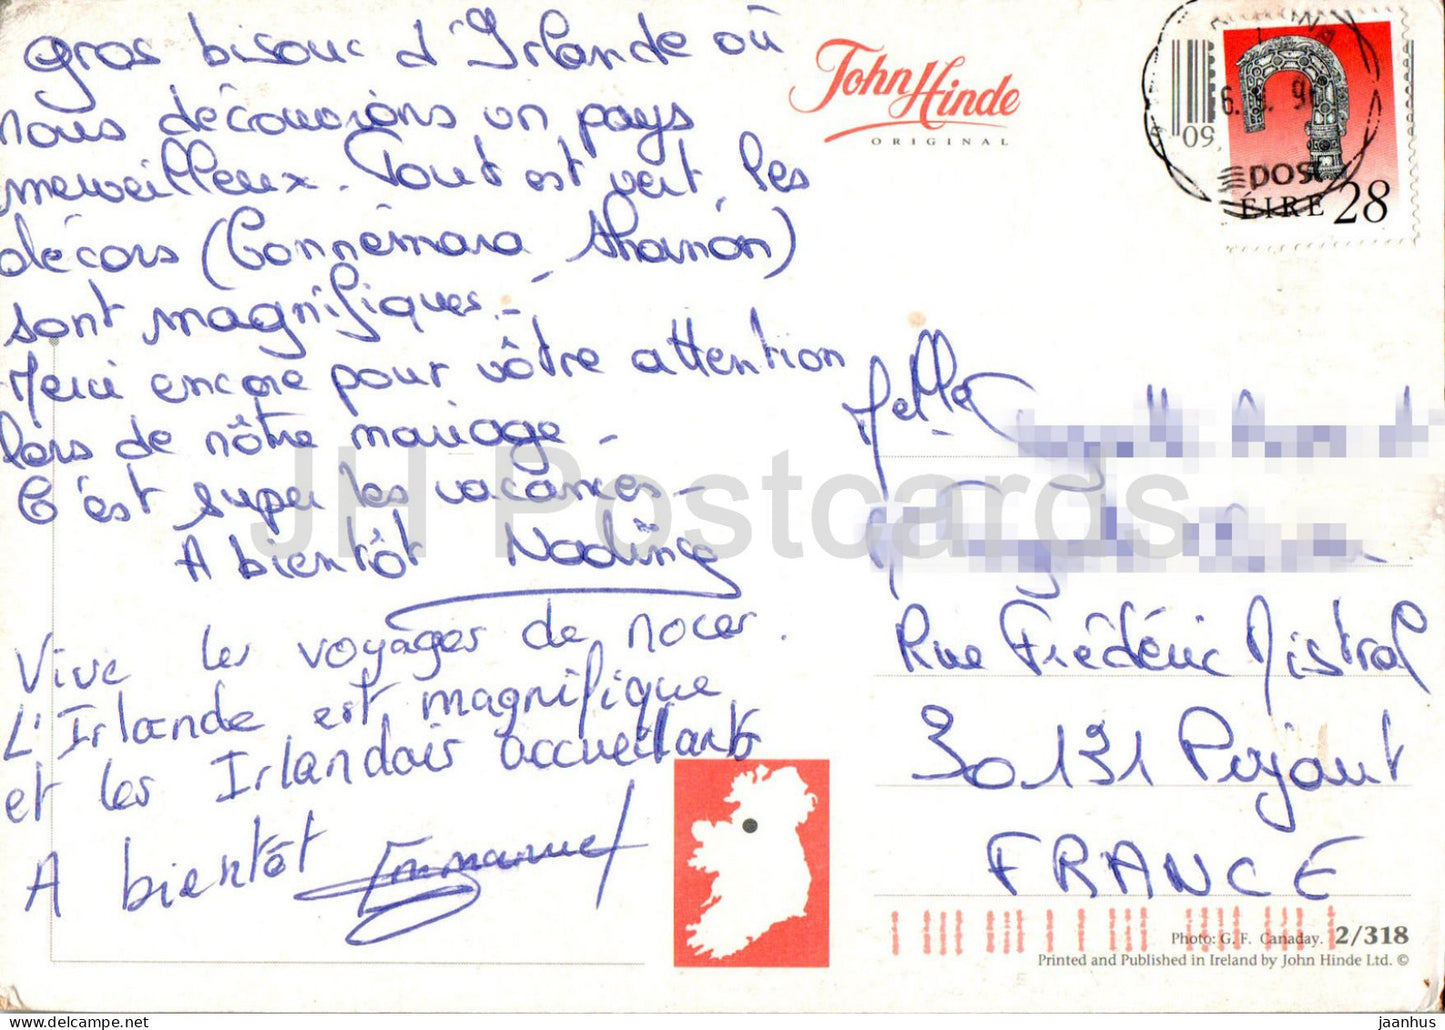 gros bisouc d'Irlande où
nous découvrons un pays
merveilleux. Tout est vert, les
décors (Connémara, Shannon)
sont magnifiques.-
Merci encore pour vôtre attention
lors de nôtre mariage -
C'est super les vacances -
A bientôt Nadine
Vive les voyages de noces.
L'Irlande est magnifique
et les Irlandais accueillants
A bientôt Emmanuel
John Hinde
ORIGINAL
50
POST
ÉIRE 28
Rue Frédéric Mistral
30131 Pujaut
FRANCE
Photo: G. F. Canaday. 2/318
Printed and Published in Ireland by John Hinde Ltd. ©
JH Postcards
jaanhus